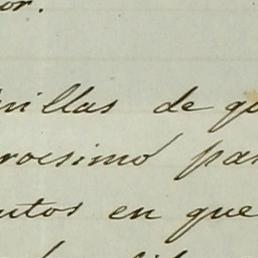 or.
nillas de qu
rocsimo par
utos en que